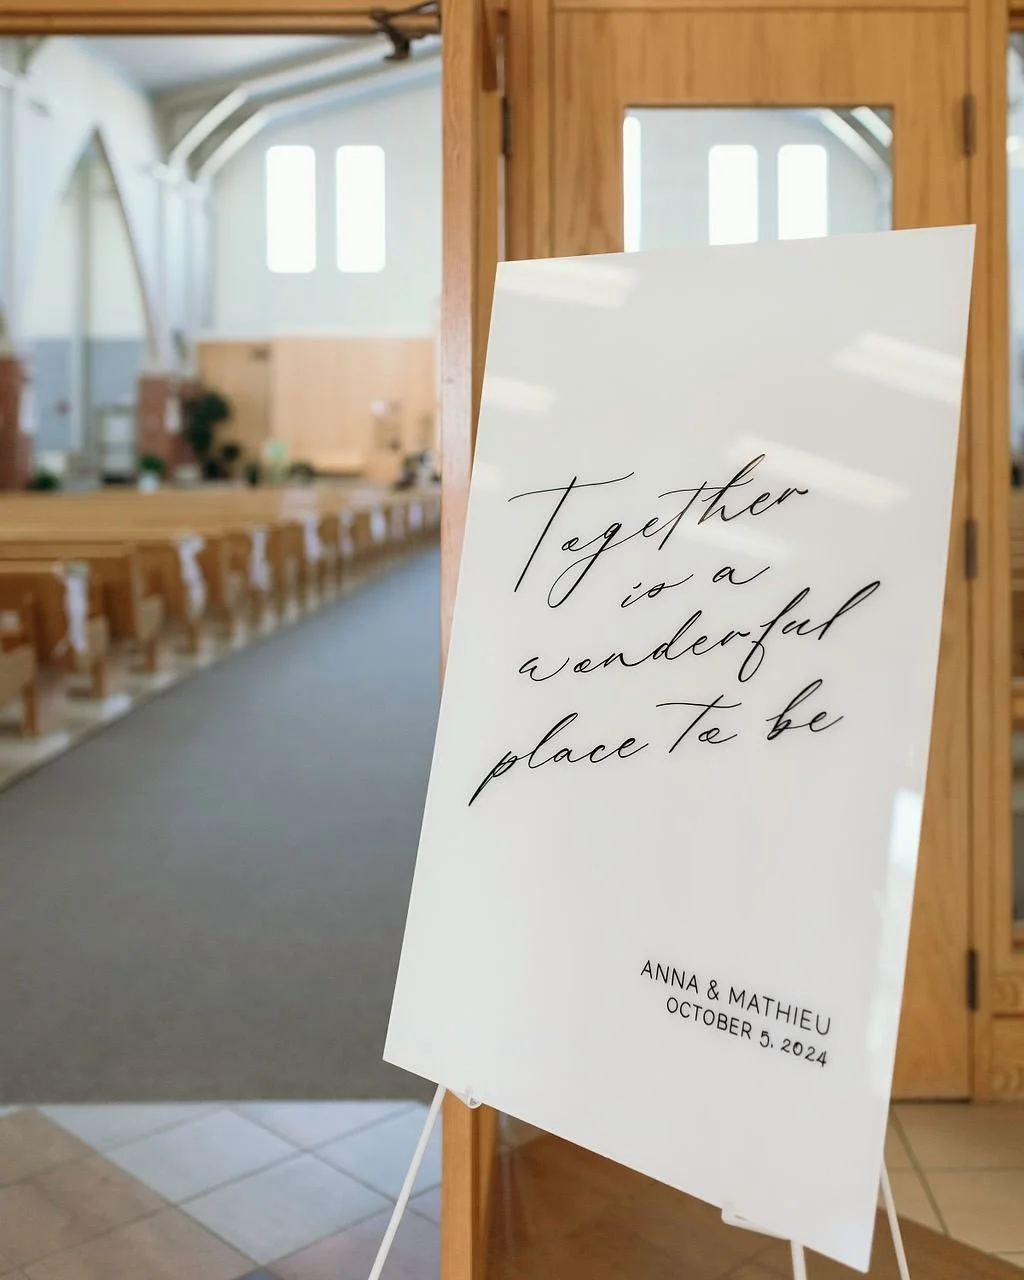 Together
is a
wonderful
place to be
ANNA & MATHIEU
OCTOBER 5, 2024